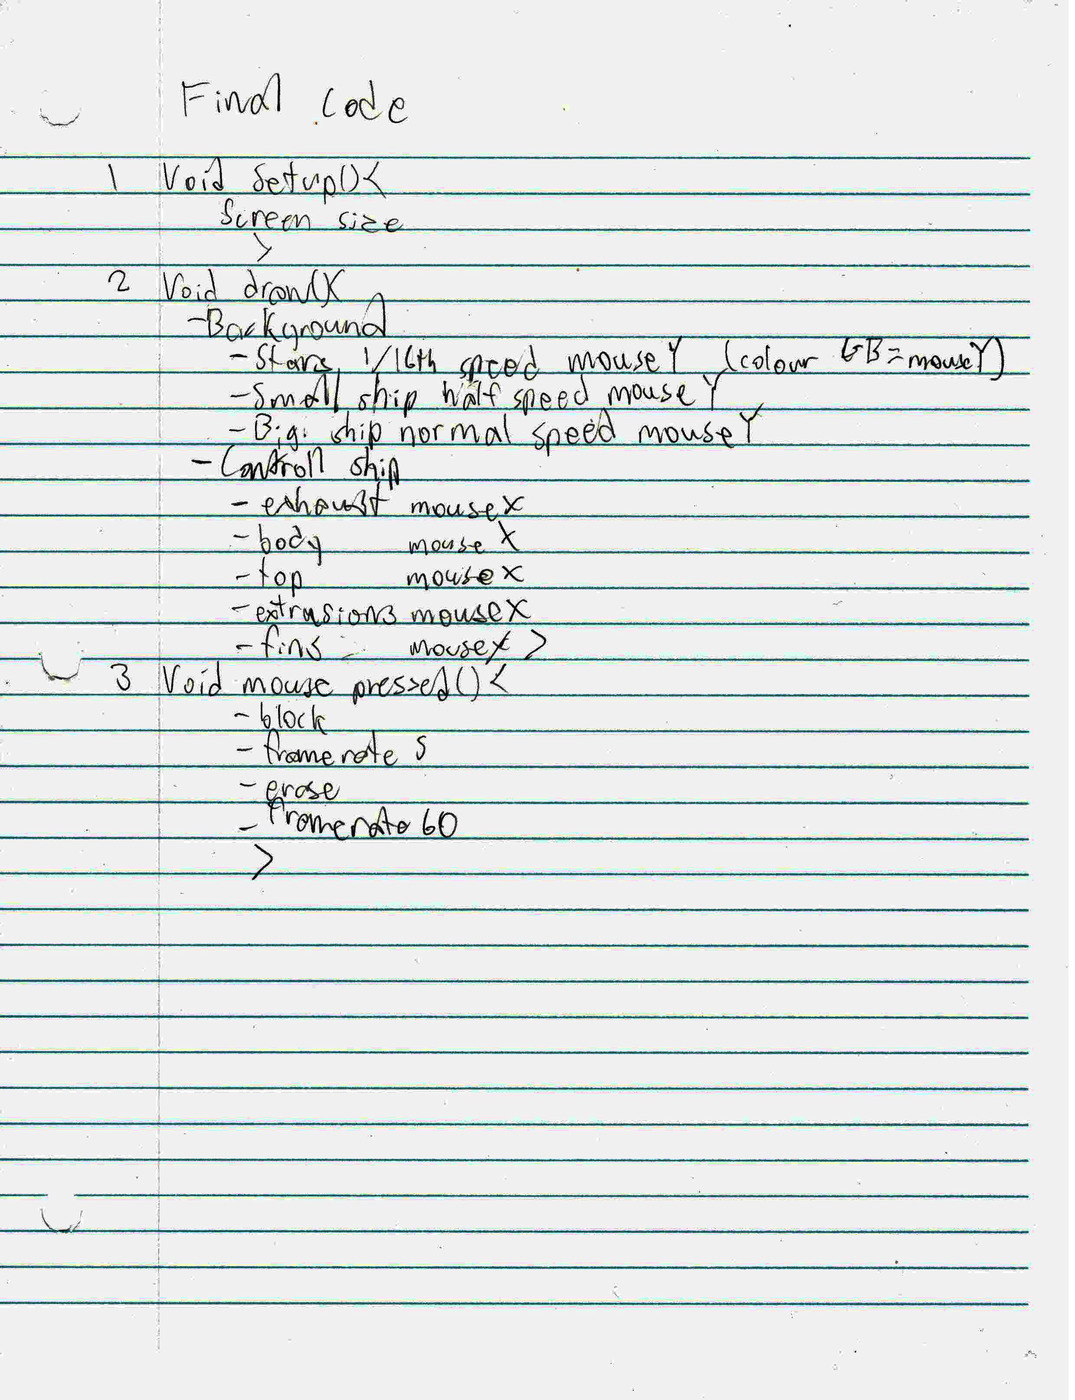 Final code
1 Void Setup(){
Screen size
}
2 Void draw(){
-Background
-Stars 1/16th speed mouseY (colour GB=mouseY)
-Small ship half speed mouse Y
-Big ship normal speed mouseY
-Controll ship
-exhaust mousex
-body mouse X
-top mousex
-extrusions mouseX
-fins mousex }
3 Void mouse pressed(){
-block
-framerate 5
-erase
-framerate 60
}